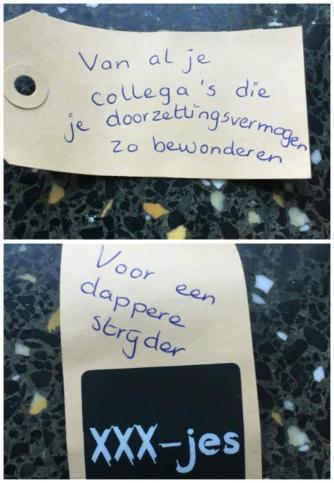 Van al je
collega's die
je doorzettingsvermogen
zo bewonderen
Voor een
dappere
strijder
XXX-jes